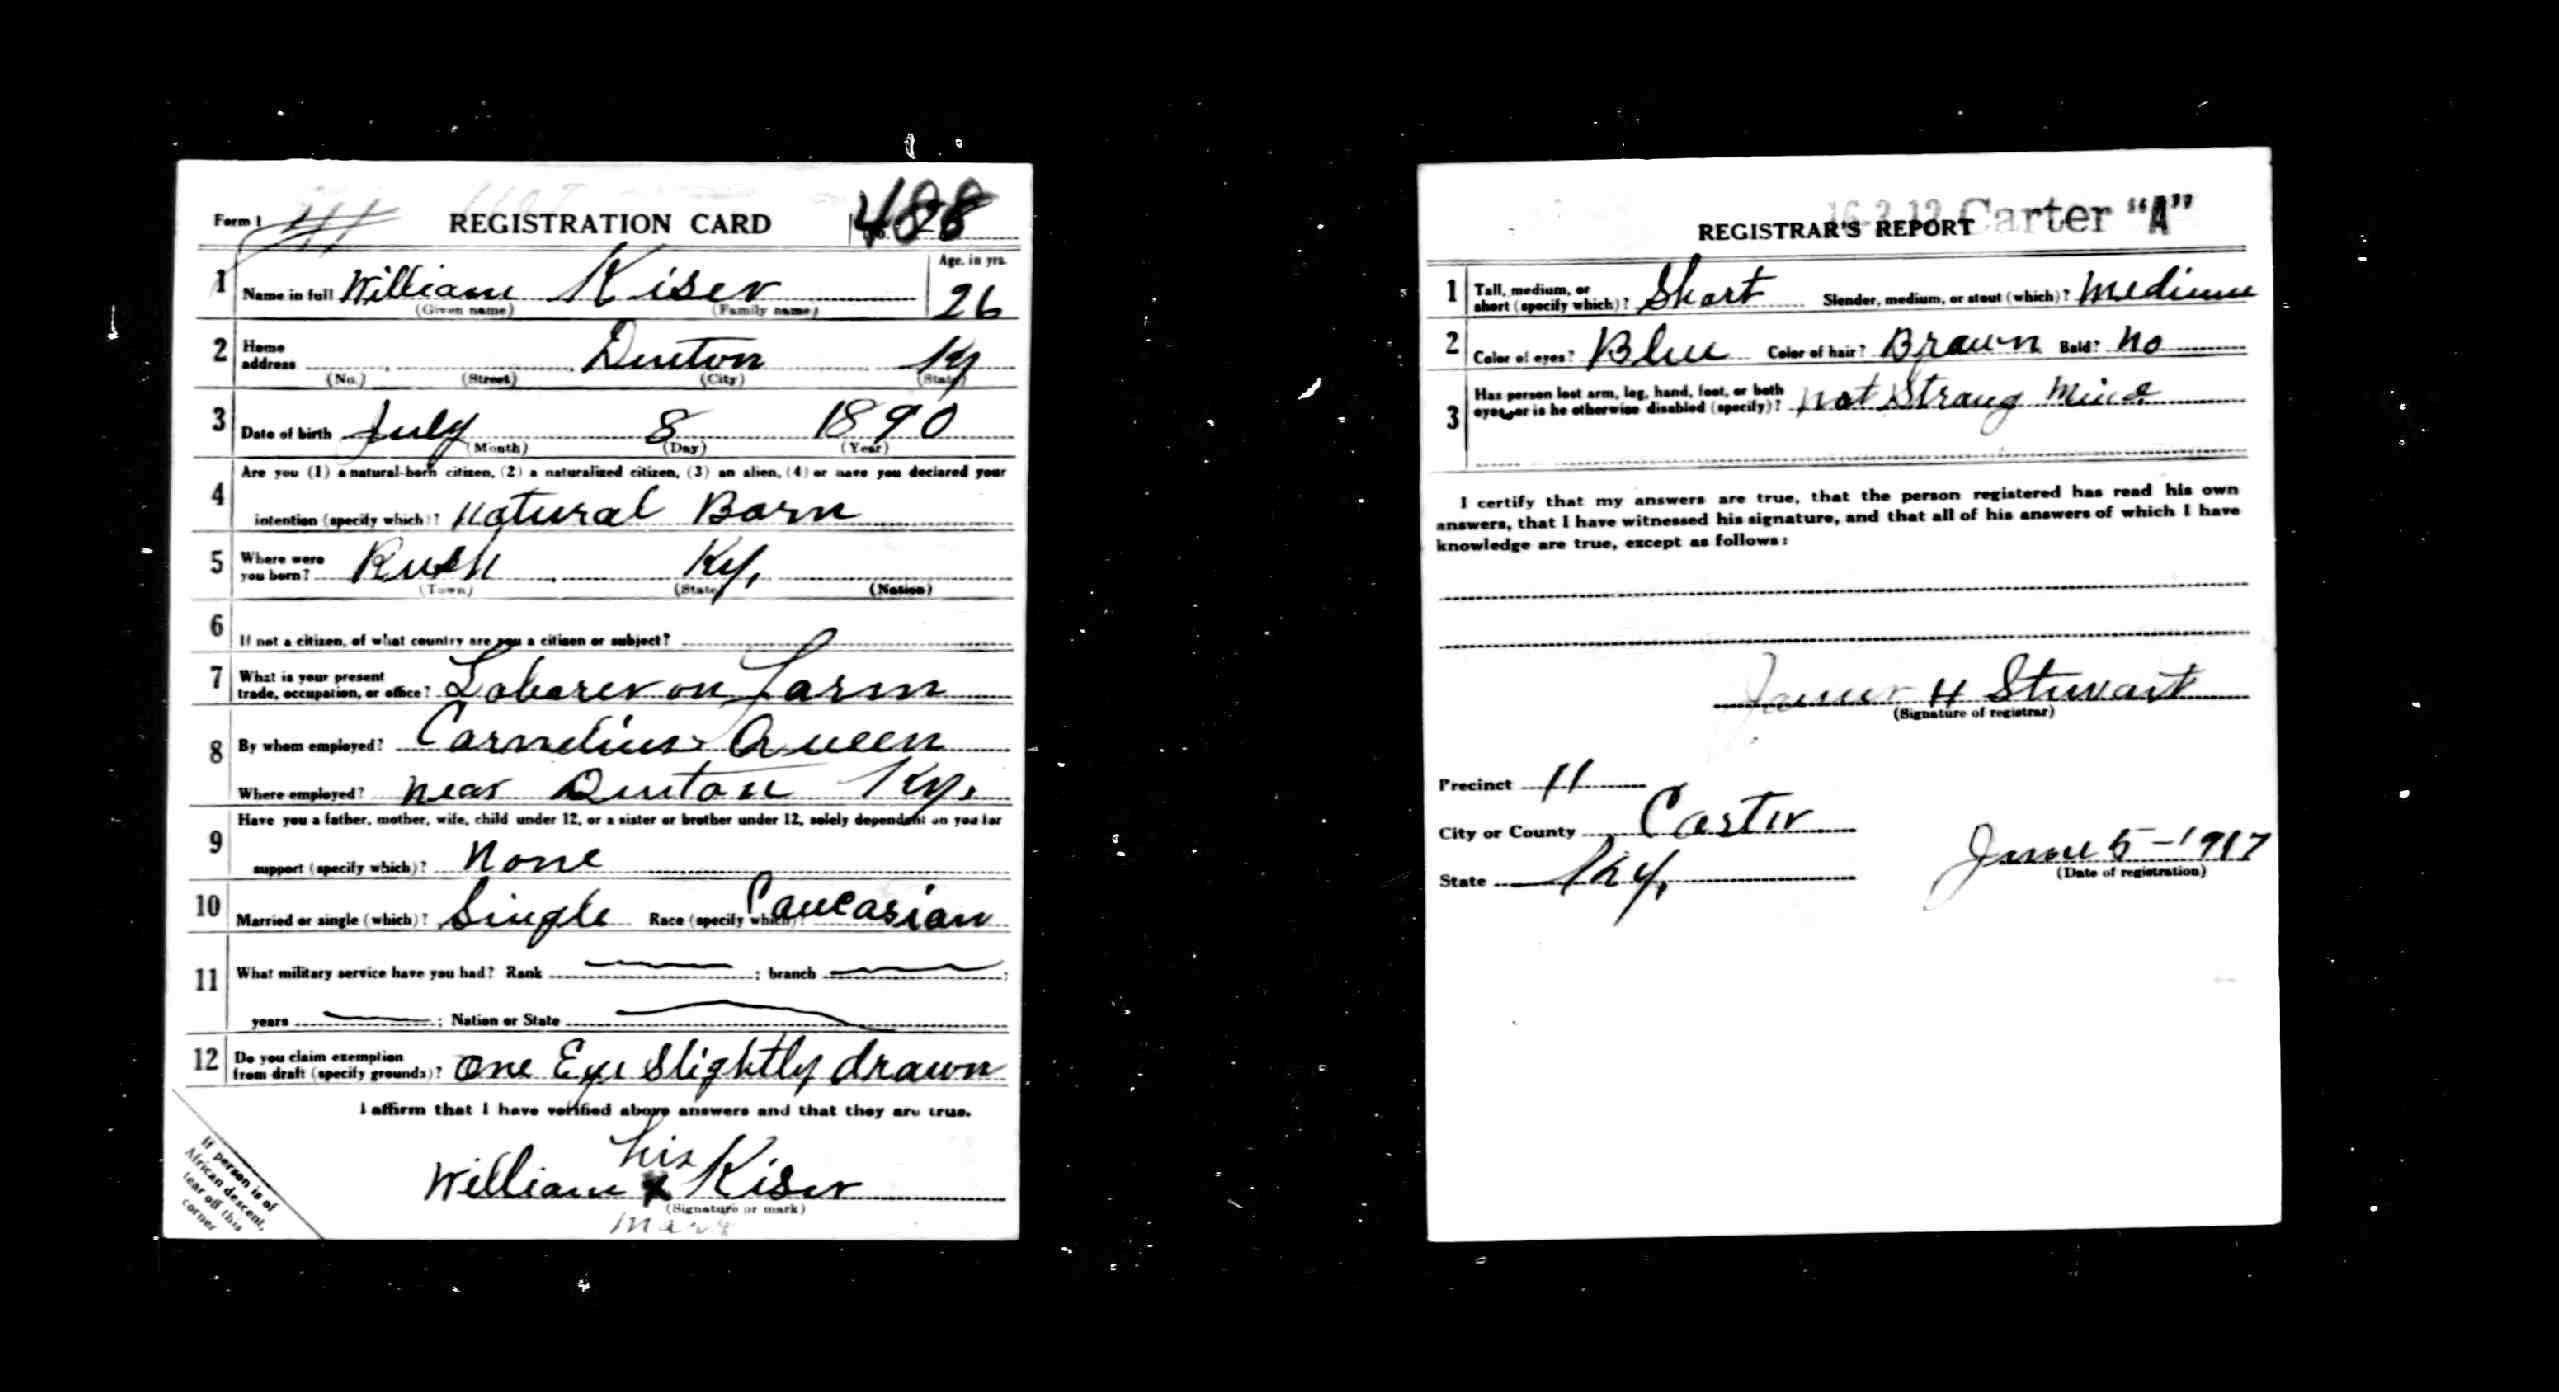 Form 1 REGISTRATION CARD No. 488
1 Name in full William Kiser Age, in yrs.
(Given name) (Family name) 26
2 Home address Denton Ky
(No.) (Street) (City) (State)
3 Date of birth July 8 1890
(Month) (Day) (Year)
4 Are you (1) a natural-born citizen, (2) a naturalized citizen, (3) an alien, (4) or have you declared your
intention (specify which)? Natural Born
5 Where were you born? Rush Ky,
(Town) (State) (Nation)
6 If not a citizen, of what country are you a citizen or subject?
7 What is your present
trade, occupation, or office? Laborer on Farm
8 By whom employed? Cornelius Queen
Where employed? near Denton Ky,
9 Have you a father, mother, wife, child under 12, or a sister or brother under 12, solely dependent on you for
support (specify which)? None
10 Married or single (which)? Single Race (specify which)? Caucasian
11 What military service have you had? Rank ; branch ;
years ; Nation or State
12 Do you claim exemption
from draft (specify grounds)? One Eye Slightly drawn
I affirm that I have verified above answers and that they are true.
his
William x Kiser
(Signature or mark)
mark
If person is of
African descent,
tear off this
corner
16-2-12 Carter "A"
REGISTRAR'S REPORT
1 Tall, medium, or
short (specify which)? Short Slender, medium, or stout (which)? Medium
2 Color of eyes? Blue Color of hair? Brown Bald? No
3 Has person lost arm, leg, hand, foot, or both
eyes, or is he otherwise disabled (specify)? not Strong Mind
I certify that my answers are true, that the person registered has read his own
answers, that I have witnessed his signature, and that all of his answers of which I have
knowledge are true, except as follows:
James H Stewart
(Signature of registrar)
Precinct 11
City or County Carter
State Ky,
June 5-1917
(Date of registration)